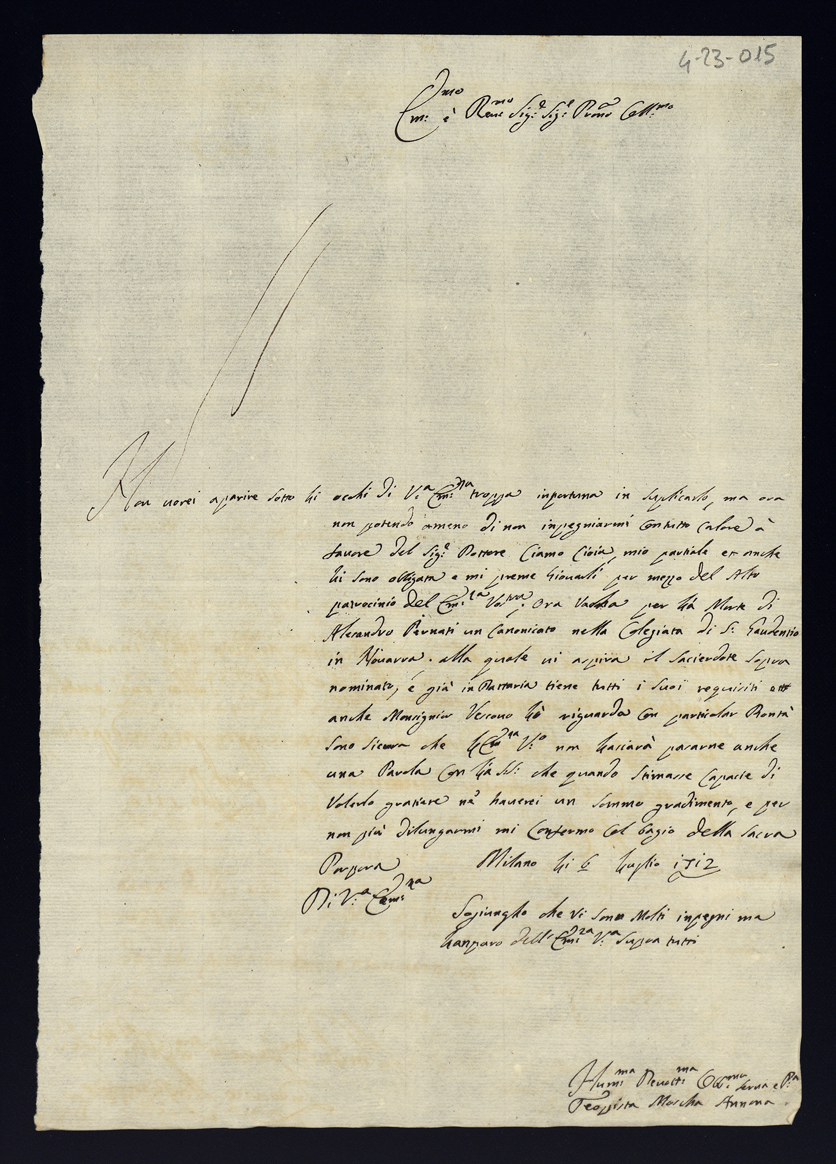 4-23-015
Em:mo è Reu:mo Sig:r Sig:r Prone Coll:mo
Non uorei aparire sotto li ochi di V:a Em:za troppa inportuna in suplicarlo, ma ora
non potendo ameno di non inpegniarmi con tutto Calore à
fauore del Sig:r Dottore Ciamo Cioia, mio partiale et anche
li sono obligata e mi preme giouarli per mezzo del Alto
patrocinio del Em:za Vostra. Ora Vacha per la Morte di
Alesandro Pernati un Canonicato nella Colegiata di S: Gaudentio
in Nouarra. alla quale ui aspira il Sacierdote sopra
nominato, è già in Dattaria tiene tutti i suoi requisiti
anche Monsignior Vescouo hà riguardo con particolar Bontà
sono sicura che Em:za V:a non lasiarà pasarne anche
una Parola con che quando stimasse Capacie di
Volerlo gratiare ne hauerei un sommo gradimento, e per
non più dilungarmi mi Confermo col bagio della Sacra
Porpora Milano li 6 Luglio 1712
Di V:a Em:za
Sogiungho che vi sono Molti inpegni ma
lanparo dell' Em:za V:a supera tutti
Humi:ma Deuott:ma Obb:ma serua e
Teopista Marcha Annona.